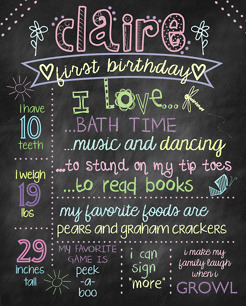 claire
first birthday
I Love...
I have
10
teeth
...BATH TIME
...music and dancing
...to stand on my tip toes
...to read books
I weigh
19
lbs
my favorite foods are
pears and graham crackers
29
inches
tall
MY FAVORITE
GAME IS
peek
-a-
boo
i can
sign
"more"
i make my
family laugh
when i
GROWL